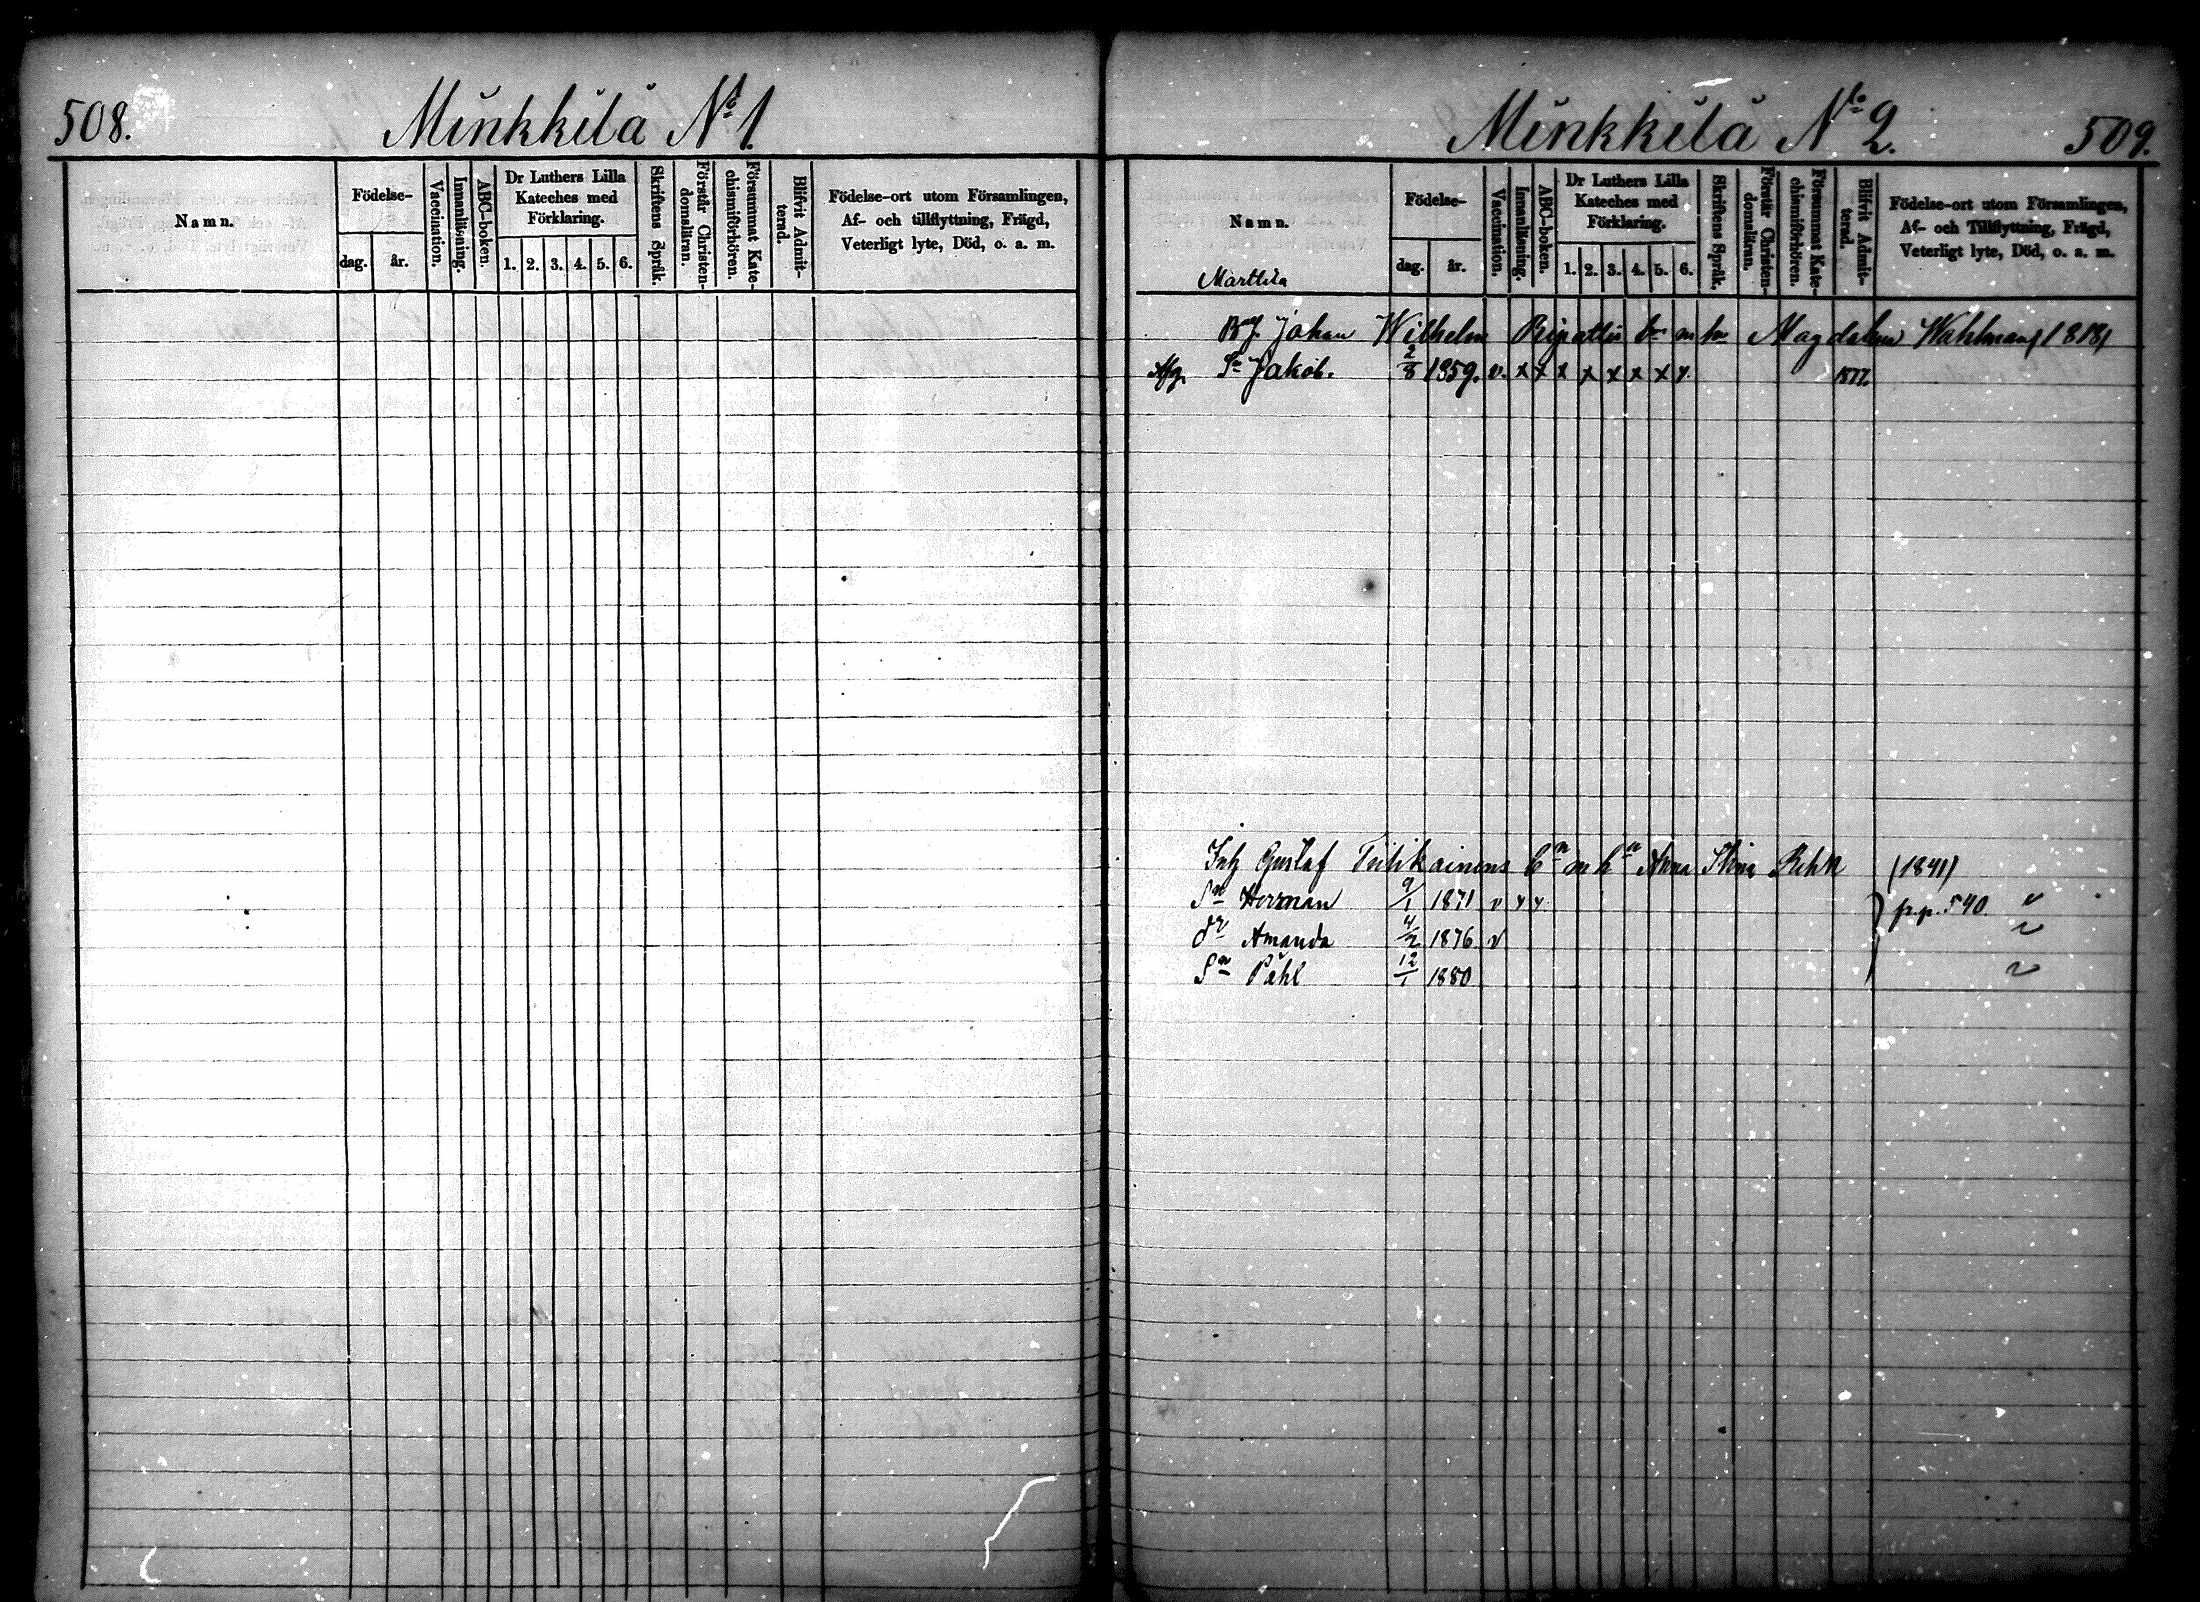 508. Minkkilä No 1.
Namn. Födelse- dag. år. Vaccination. Innanläsning. ABC-boken. Dr Luthers Lilla Kateches med Förklaring. 1. 2. 3. 4. 5. 6. Skriftens Språk. Förstår Christendomsläran. Försummat Katechismiförhören. Blifvit Admitterad. Födelse-ort utom Församlingen, Af- och tillflyttning, Frägd, Veterligt lyte, Död, o. a. m.
Minkkilä No 2. 509.
Namn. Födelse- dag. år. Vaccination. Innanläsning. ABC-boken. Dr Luthers Lilla Kateches med Förklaring. 1. 2. 3. 4. 5. 6. Skriftens Språk. Förstår Christendomsläran. Försummat Katechismiförhören. Blifvit Admitterad. Födelse-ort utom Församlingen, Af- och Tillflyttning, Frägd, Veterligt lyte, Död, o. a. m.
Marttila
Johan Wilhelm bn m hn Magdalena Wahlman (1818)
Sn Jakob. 2/8 1859. v. x x x x x x x x 1877.
Gustaf bn m hn Anna Stina Rehn (1841)
Sn Herman 9/1 1871 v x x p.p. 540. "
dr Amanda 4/2 1876 v "
Sn Påhl 12/1 1880 "